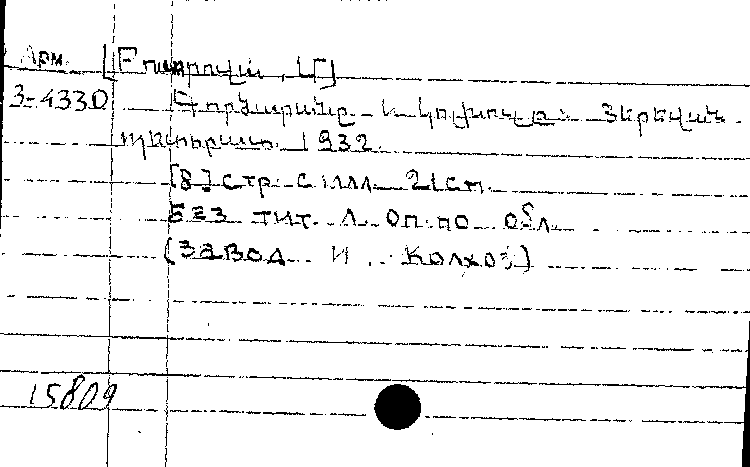 Арм.
3-4330
Գործարանը և կոլխոզը: Յերեվան.
պետհրատ. 1932.
[8] стр. с илл. 21 см.
Без тит. л. оп. по обл.
(Завод и колхоз)
15809